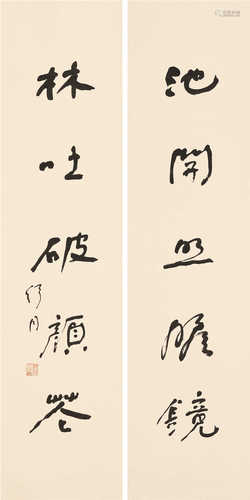 池開照膽鏡
林吐破顏花
舒同